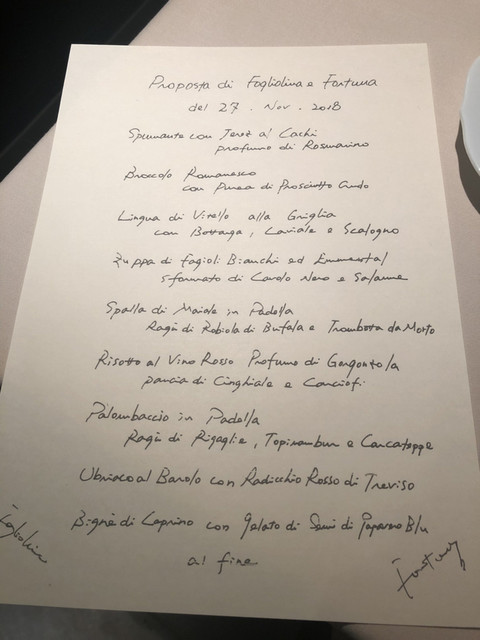 Proposta di Fogliolina e Fortuna
del 27. Nov. 2018
Spumante con Terez al Cachi
profumo di Rosmarino
Broccolo Romanesco
con Purea di Prosciutto Crudo
Lingua di Vitello alla Griglia
con Bottarga, Caviale e Scalogno
Zuppa di fagioli Bianchi ed Emmental
sformato di Cavolo Nero e Salame
Spalla di Maiale in Padella
Ragù di Robiola di Bufala e Trombetta da Morto
Risotto al Vino Rosso Profumo di Gorgonzola
pancia di Cinghiale e Carciofi
Palombaccio in Padella
Ragù di Rigaglie, Topinambur e
Ubriaco al Barolo con Radicchio Rosso di Treviso
Bignè di Caprino con gelato di Semi di Papavero Blu
al fine
Fogliolina